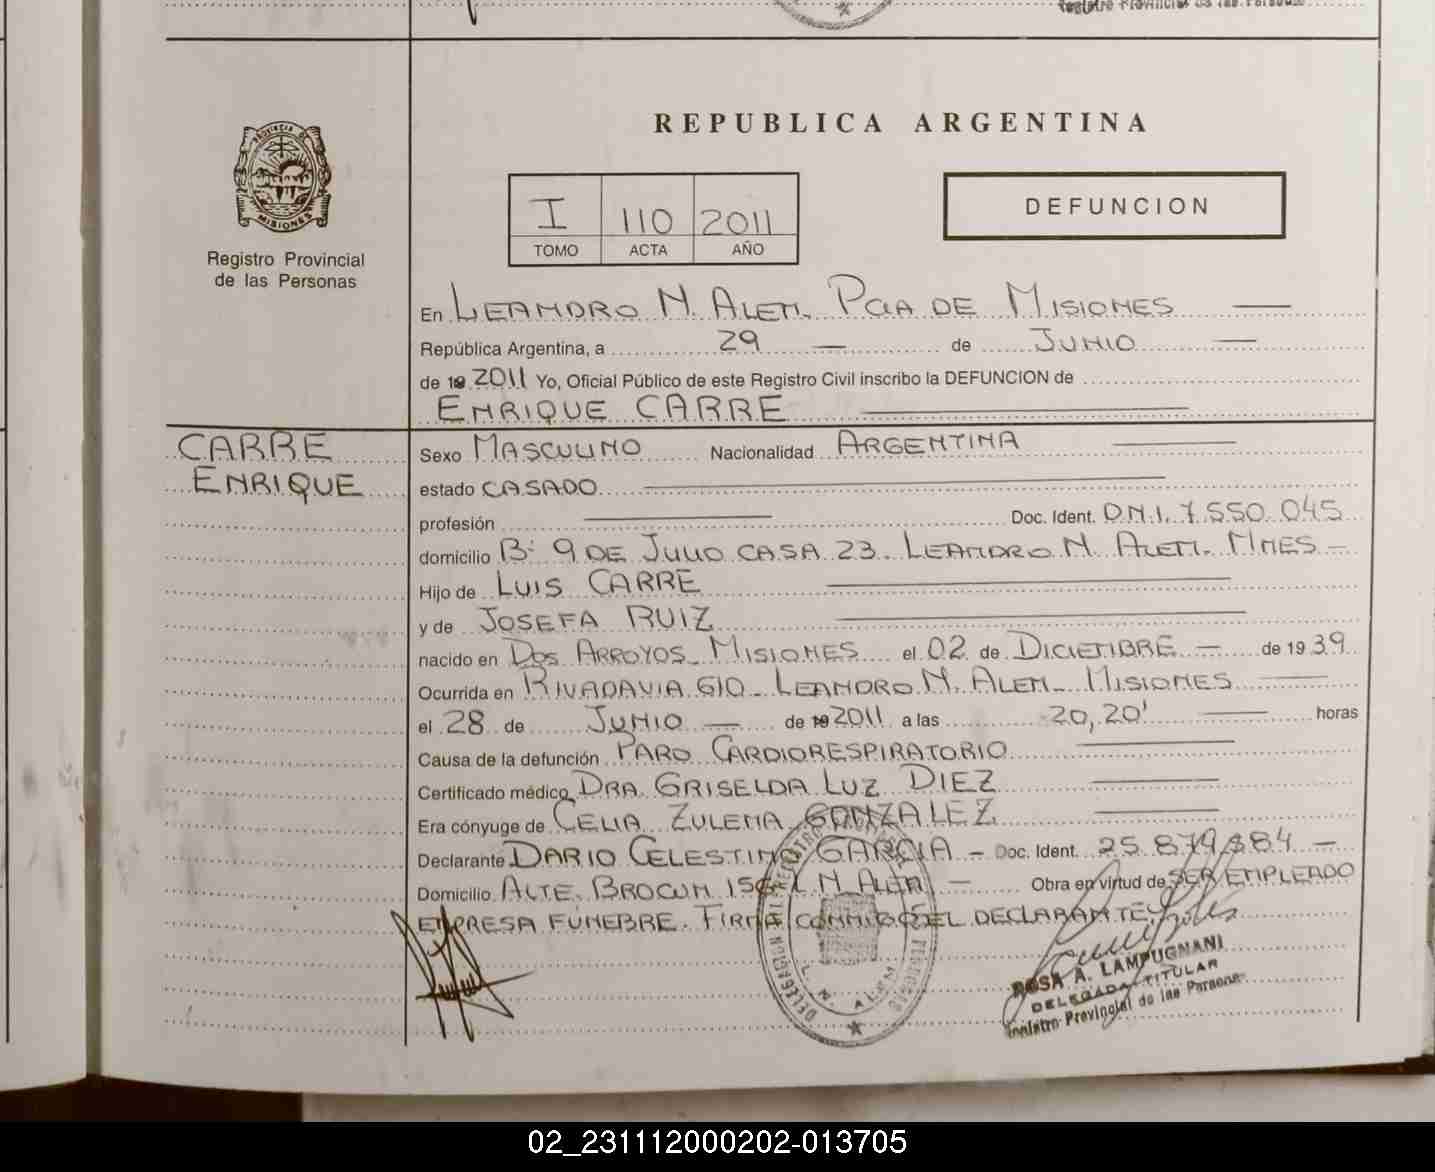 Registro Provincial de las Personas
PROVINCIA DE
MISIONES
Registro Provincial
de las Personas
REPUBLICA ARGENTINA
I 110 2011
TOMO ACTA AÑO
DEFUNCION
En LEANDRO N. ALEM. PCIA DE MISIONES
República Argentina, a 29 — de JUNIO —
de 19 2011 Yo, Oficial Público de este Registro Civil inscribo la DEFUNCION de
ENRIQUE CARRE
CARRE
ENRIQUE
Sexo MASCULINO Nacionalidad ARGENTINA
estado CASADO
profesión — Doc. Ident. D.N.I. 7.550.045
domicilio B: 9 DE JULIO CASA 23. LEANDRO N. ALEM. MNES —
Hijo de LUIS CARRE
y de JOSEFA RUIZ
nacido en DOS ARROYOS - MISIONES el 02 de DICIEMBRE — de 1939
Ocurrida en RIVADAVIA 610 - LEANDRO N. ALEM - MISIONES —
el 28 de JUNIO — de 19 2011 a las 20,20' — horas
Causa de la defunción PARO CARDIORESPIRATORIO
Certificado médico DRA. GRISELDA LUZ DIEZ
Era cónyuge de CELIA ZULEMA GONZALEZ
Declarante DARIO CELESTINO GARCIA — Doc. Ident. 25.879.884 —
Domicilio ALTE. BROWN 156 - L. N. ALEM — Obra en virtud de SER EMPLEADO
EMPRESA FÚNEBRE. FIRMA CONMIGO EL DECLARANTE.
L. N. ALEM
ROSA A. LAMPUGNANI
DELEGADA TITULAR
Registro Provincial de las Personas
02_231112000202-013705